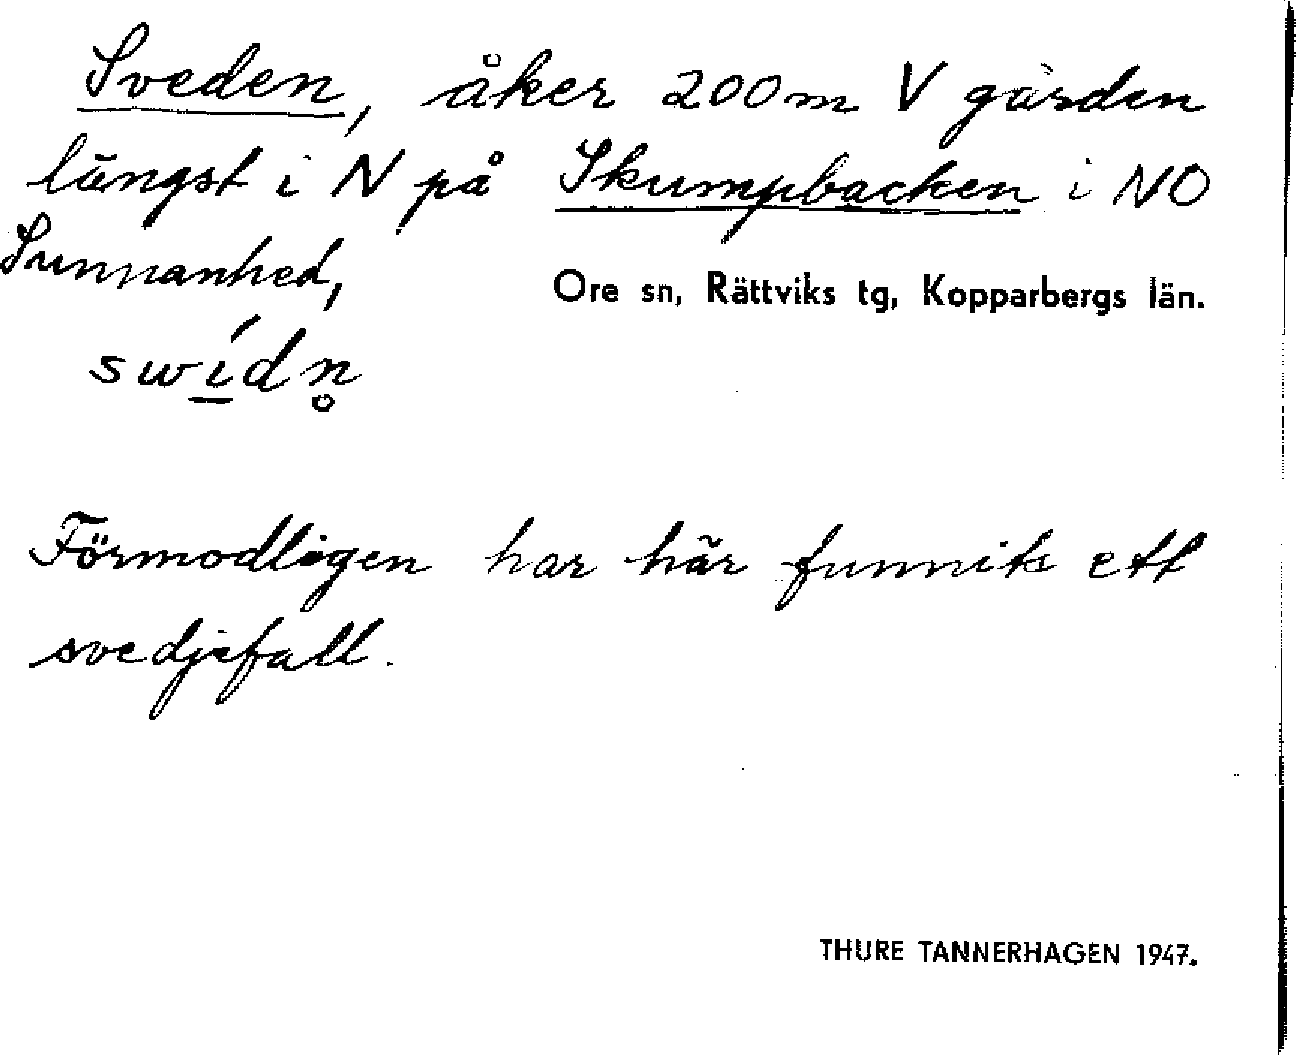 Sveden, åker 200 m V gården
längst i N på Skumpbacken i NO
Sunnanhed,
Ore sn, Rättviks tg, Kopparbergs län.
swí̱dn̥
Förmodligen har här funnits ett
svedjefall.
THURE TANNERHAGEN 1947.